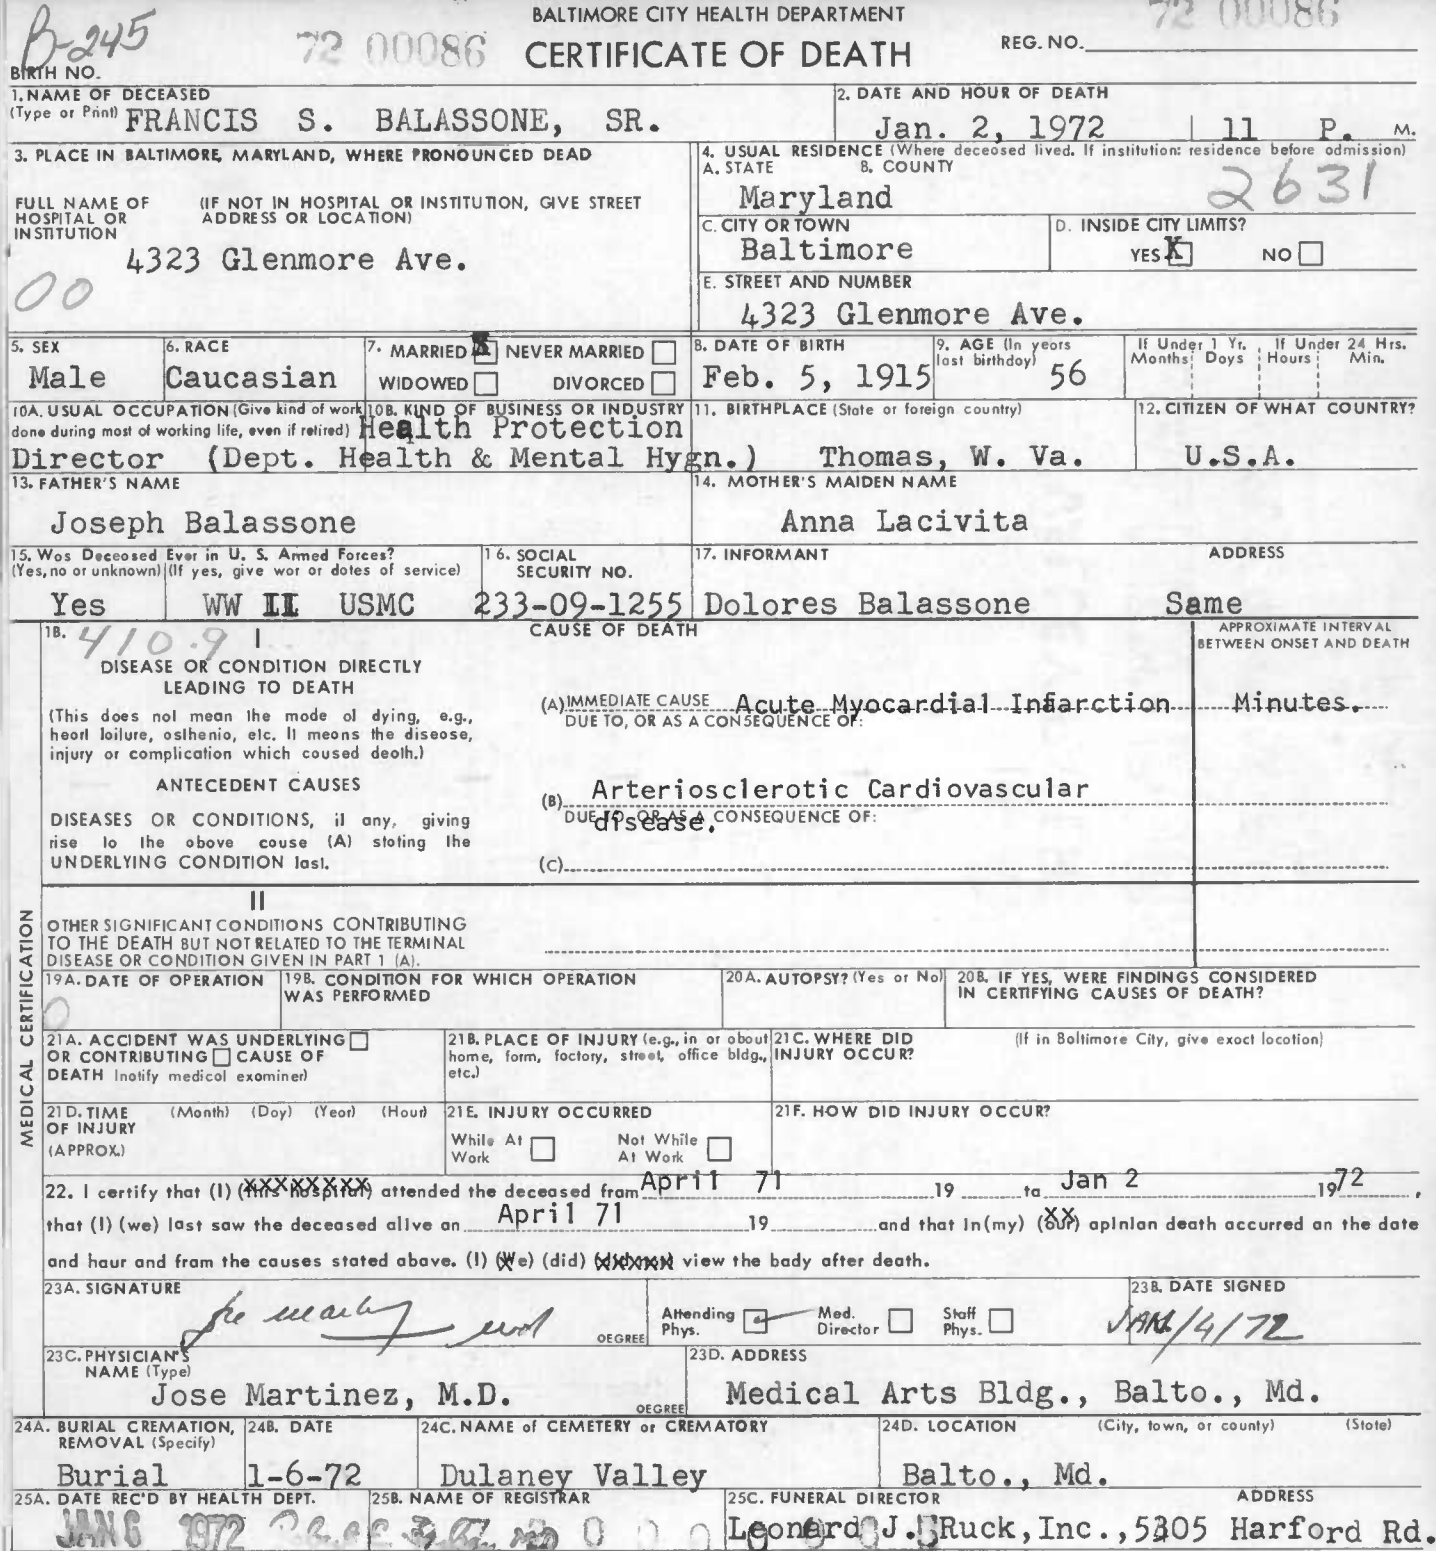 BALTIMORE CITY HEALTH DEPARTMENT
B-245
72 00086
72 00086
CERTIFICATE OF DEATH
REG. NO.
BIRTH NO.
1. NAME OF DECEASED
(Type or Print) FRANCIS S. BALASSONE, SR.
2. DATE AND HOUR OF DEATH
Jan. 2, 1972 11 P. M.
3. PLACE IN BALTIMORE, MARYLAND, WHERE PRONOUNCED DEAD
FULL NAME OF HOSPITAL OR INSTITUTION
(IF NOT IN HOSPITAL OR INSTITUTION, GIVE STREET ADDRESS OR LOCATION)
4323 Glenmore Ave.
00
4. USUAL RESIDENCE (Where deceased lived. If institution: residence before admission)
A. STATE B. COUNTY
Maryland 2631
C. CITY OR TOWN
Baltimore
D. INSIDE CITY LIMITS?
YES X NO
E. STREET AND NUMBER
4323 Glenmore Ave.
5. SEX
Male
6. RACE
Caucasian
7. MARRIED X NEVER MARRIED
WIDOWED DIVORCED
8. DATE OF BIRTH
Feb. 5, 1915
9. AGE (In years last birthday)
56
If Under 1 Yr. If Under 24 Hrs.
Months Days Hours Min.
10A. USUAL OCCUPATION (Give kind of work done during most of working life, even if retired)
10B. KIND OF BUSINESS OR INDUSTRY
Health Protection
Director (Dept. Health & Mental Hygn.)
11. BIRTHPLACE (State or foreign country)
Thomas, W. Va.
12. CITIZEN OF WHAT COUNTRY?
U.S.A.
13. FATHER'S NAME
Joseph Balassone
14. MOTHER'S MAIDEN NAME
Anna Lacivita
15. Was Deceased Ever in U. S. Armed Forces?
(Yes, no or unknown) (If yes, give war or dates of service)
Yes WW II USMC
16. SOCIAL SECURITY NO.
233-09-1255
17. INFORMANT ADDRESS
Dolores Balassone Same
18. 410.9 I
CAUSE OF DEATH
APPROXIMATE INTERVAL BETWEEN ONSET AND DEATH
DISEASE OR CONDITION DIRECTLY
LEADING TO DEATH
(This does not mean the mode of dying, e.g.,
heart failure, asthenia, etc. It means the disease,
injury or complication which caused death.)
(A) IMMEDIATE CAUSE Acute Myocardial Infarction Minutes.
DUE TO, OR AS A CONSEQUENCE OF:
ANTECEDENT CAUSES
DISEASES OR CONDITIONS, if any, giving
rise to the above cause (A) stating the
UNDERLYING CONDITION last.
(B) Arteriosclerotic Cardiovascular
disease.
DUE TO, OR AS A CONSEQUENCE OF:
(C)
II
OTHER SIGNIFICANT CONDITIONS CONTRIBUTING
TO THE DEATH BUT NOT RELATED TO THE TERMINAL
DISEASE OR CONDITION GIVEN IN PART 1 (A).
MEDICAL CERTIFICATION
19A. DATE OF OPERATION
0
19B. CONDITION FOR WHICH OPERATION WAS PERFORMED
20A. AUTOPSY? (Yes or No)
20B. IF YES, WERE FINDINGS CONSIDERED IN CERTIFYING CAUSES OF DEATH?
21A. ACCIDENT WAS UNDERLYING
OR CONTRIBUTING CAUSE OF
DEATH (notify medical examiner)
21B. PLACE OF INJURY (e.g., in or about home, farm, factory, street, office bldg., etc.)
21C. WHERE DID INJURY OCCUR? (If in Baltimore City, give exact location)
21D. TIME OF INJURY (APPROX.) (Month) (Day) (Year) (Hour)
21E. INJURY OCCURRED
While At Work Not While At Work
21F. HOW DID INJURY OCCUR?
22. I certify that (I) (this hospital) attended the deceased from April 71 19 to Jan 2 1972,
that (I) (we) last saw the deceased alive on April 71 19 and that in (my) (our) opinion death occurred on the date
and hour and from the causes stated above. (I) (We) (did) (did not) view the body after death.
23A. SIGNATURE
DEGREE
Attending Phys. Med. Director Staff Phys.
23B. DATE SIGNED
JAN/4/72
23C. PHYSICIAN'S NAME (Type)
Jose Martinez, M.D.
DEGREE
23D. ADDRESS
Medical Arts Bldg., Balto., Md.
24A. BURIAL CREMATION, REMOVAL (Specify)
Burial
24B. DATE
1-6-72
24C. NAME of CEMETERY or CREMATORY
Dulaney Valley
24D. LOCATION (City, town, or county) (State)
Balto., Md.
25A. DATE REC'D BY HEALTH DEPT.
JAN 6 1972
25B. NAME OF REGISTRAR
25C. FUNERAL DIRECTOR ADDRESS
Leonard J. Ruck, Inc., 5305 Harford Rd.